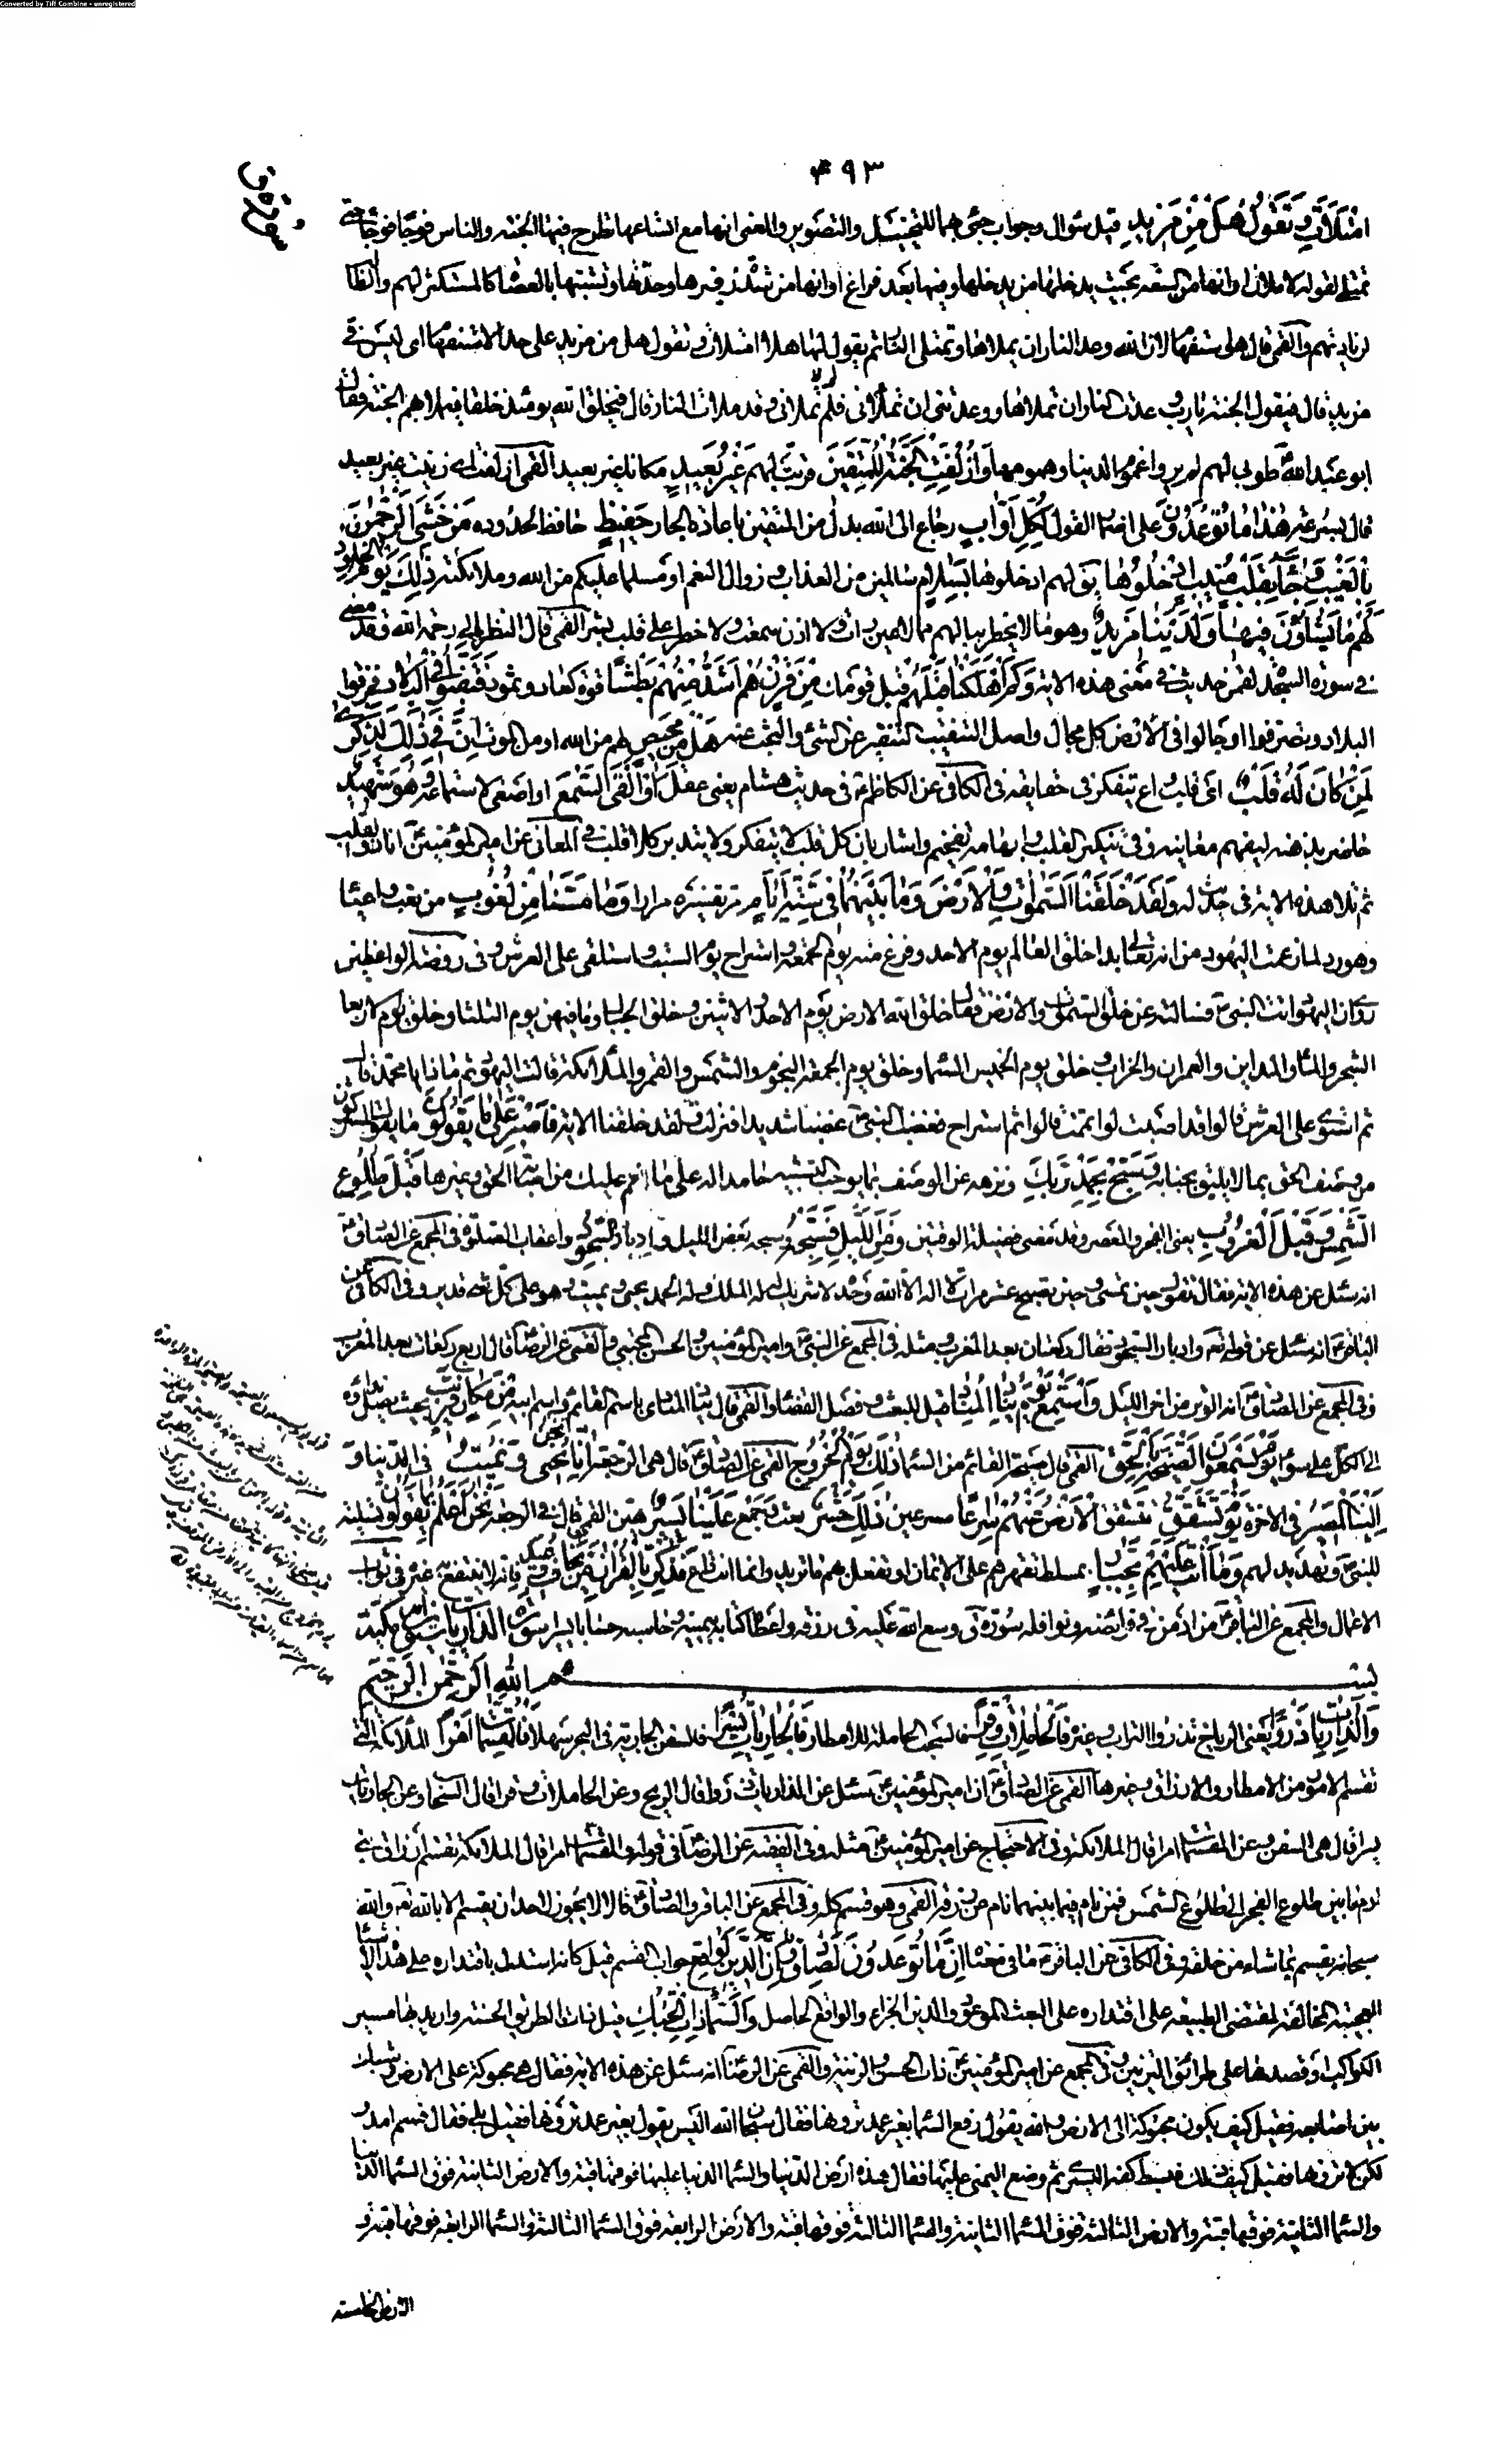 Converted by Tiff Combine - unregistered
٤٩٣
سورة ق
امْتَلَأْتِ وَتَقُولُ هَلْ مِنْ مَزِيدٍ قيل سؤال وجواب جيء بهما للتخييل والتصوير والمعنى انها مع اتساعها تطرح فيها الجنة والناس فوجا فوجا حتى
تمتلي لقوله لاملان او انها من السعة بحيث يدخلها من يدخلها وفيها بعد فراغ او انها من شدة زفيرها وحدتها وتشبثها بالعصاة كالمستكثر لهم والطالب
لزيادتهم والقمي قال هو استفهام لان الله وعد النار ان يملاها وتمتلي النار ثم يقول لها هل امتلات وتقول هل من مزيد على حد الاستفهام اي ليس في
مزيد قال فيقول الجنة يا رب وعدت النار ان تملاها ووعدتني ان تملاني فلم لا تملاني وقد ملات النار قال فيخلق الله يومئذ خلقا فيملا بهم الجنة فقال
ابو عبد الله طوبى لهم لم يروا غموم الدنيا وهمومها وَأُزْلِفَتِ الْجَنَّةُ لِلْمُتَّقِينَ قربت لهم غَيْرَ بَعِيدٍ مكانا غير بعيد القمي ازلفت اي زينت غير بعيد
قال بسرعة هٰذَا مَا تُوعَدُونَ على اضمار القول لِكُلِّ أَوَّابٍ رجاع الى الله بدل من المتقين باعادة الجار حَفِيظٍ حافظ لحدوده مَنْ خَشِيَ الرَّحْمٰنَ
بِالْغَيْبِ وَجَاءَ بِقَلْبٍ مُنِيبٍ ادْخُلُوهَا يقال لهم ادخلوها بِسَلَامٍ سالمين من العذاب وزوال النعم او مسلما عليكم من الله وملائكته ذٰلِكَ يَوْمُ الْخُلُودِ
لَهُمْ مَا يَشَاؤُنَ فِيهَا وَلَدَيْنَا مَزِيدٌ وهو ما لا يخطر ببالهم مما لا عين رات ولا اذن سمعت ولا خطر على قلب بشر القمي قال النظر الى رحمة الله وقد مضى
في سورة السجدة لقمن حديث في معنى هذه الاية وَكَمْ أَهْلَكْنَا قَبْلَهُمْ قبل قومك مِنْ قَرْنٍ هُمْ أَشَدُّ مِنْهُمْ بَطْشًا قوة كعاد وثمود فَنَقَّبُوا فِي الْبِلَادِ فخرقوا
البلاد وتصرفوا فيها او جالوا في الارض كل مجال واصل التنقيب التنقير عن الشيء والبحث عنه هَلْ مِنْ مَحِيصٍ لهم من الله او من الموت إِنَّ فِي ذٰلِكَ لَذِكْرَىٰ
لِمَنْ كَانَ لَهُ قَلْبٌ اي قلب واع يتفكر في حقايقه في الكافي عن الكاظم في حديث هشام يعني عقل أَوْ أَلْقَى السَّمْعَ او اصغى لاستماعه وَهُوَ شَهِيدٌ
حاضر بذهنه ليفهم معانيه وفي تنكير القلب وابهامه تفخيم واشعار بان كل قلب لا يتفكر ولا يتدبر كلا قلب في المعاني عن امير المؤمنين انا ذو القلب
ثم تلا هذه الاية في حديث له وَلَقَدْ خَلَقْنَا السَّمٰوَاتِ وَالْأَرْضَ وَمَا بَيْنَهُمَا فِي سِتَّةِ أَيَّامٍ مر تفسيره مرارا وَمَا مَسَّنَا مِنْ لُغُوبٍ من تعب واعياء
وهو رد لما زعمت اليهود من انه تعالى بدا خلق العالم يوم الاحد وفرغ منه يوم الجمعة واستراح يوم السبت واستلقى على العرش وفي روضة الواعظين
روى ان اليهود اتت النبي فسالته عن خلق السموات والارض فقال خلق الله الارض يوم الاحد والاثنين وخلق الجبال وما فيهن يوم الثلثا وخلق يوم الاربعا
الشجر والماء والمداين والعمران والخراب وخلق يوم الخميس السماء وخلق يوم الجمعة النجوم والشمس والقمر والملائكة قالت اليهود ثم ماذا يا محمد قال
ثم استوى على العرش قالوا قد اصبت لو اتممت قالوا ثم استراح فغضب النبي غضبا شديدا فنزلت ولقد خلقنا الاية فَاصْبِرْ عَلَىٰ مَا يَقُولُونَ ما يقول المشركون
من وصف الحق بما لا يليق بجنابه وَسَبِّحْ بِحَمْدِ رَبِّكَ ونزهه عن الوصف بما يوجب التشبيه حامدا له على ما انعم عليك من اصابة الحق وغيرها قَبْلَ طُلُوعِ
الشَّمْسِ وَقَبْلَ الْغُرُوبِ يعني الفجر والعصر وقد مضى فضيلة الوقتين وَمِنَ اللَّيْلِ فَسَبِّحْهُ وسبحه بعض الليل وَأَدْبَارَ السُّجُودِ واعقاب الصلوة في المجمع عن الصادق
انه سئل عن هذه الاية فقال تقول حين تمسي وحين تصبح عشر مرات لا اله الا الله وحده لا شريك له له الملك وله الحمد يحيي ويميت وهو على كل شيء قدير وفي الكافي عن
الباقر انه سئل عن قوله تعالى وادبار السجود فقال ركعتان بعد المغرب ومثله في المجمع عن النبي وامير المؤمنين والحسن المجتبى والقمي عن الرضا قال اربع ركعات بعد المغرب
وفي المجمع عن الصادق انه الوتر من اخر الليل وَاسْتَمِعْ يَوْمَ يُنَادِ الْمُنَادِ قيل للبعث وفصل القضاء والقمي قال ينادي المنادي باسم القائم واسم ابيه مِنْ مَكَانٍ قَرِيبٍ بحيث يصل نداؤه
الى الكل على سواء يَوْمَ يَسْمَعُونَ الصَّيْحَةَ بِالْحَقِّ القمي قال صيحة القائم من السماء ذٰلِكَ يَوْمُ الْخُرُوجِ القمي عن الصادق قال هي الرجعة إِنَّا نَحْنُ نُحْيِي وَنُمِيتُ في الدنيا وَ
إِلَيْنَا الْمَصِيرُ في الاخرة يَوْمَ تَشَقَّقُ تتشقق الْأَرْضُ عَنْهُمْ سِرَاعًا مسرعين ذٰلِكَ حَشْرٌ بعث وجمع عَلَيْنَا يَسِيرٌ هين القمي قال في الرجعة نَحْنُ أَعْلَمُ بِمَا يَقُولُونَ تسلية
للنبي وتهديد لهم وَمَا أَنْتَ عَلَيْهِمْ بِجَبَّارٍ بمسلط تقهرهم على الايمان او تفعل بهم ما تريد وانما انت داع فَذَكِّرْ بِالْقُرْآنِ مَنْ يَخَافُ وَعِيدِ فانه لا ينتفع به غيره في ثواب
الاعمال والمجمع عن الباقر من ادمن في فرائضه ونوافله سورة ق وسع الله عليه في رزقه واعطاه كتابه بيمينه وحاسبه حسابا يسيرا سورة الذاريات مكية
بسم الله الرحمن الرحيم
وَالذَّارِيَاتِ ذَرْوًا يعني الرياح تذروا التراب وغيره فَالْحَامِلَاتِ وِقْرًا فالسحب الحاملة للامطار فَالْجَارِيَاتِ يُسْرًا فالسفن الجارية في البحر سهلا فَالْمُقَسِّمَاتِ أَمْرًا الملائكة التي
تقسم الامور من الامطار والارزاق وغيرها القمي عن الصادق ان امير المؤمنين سئل عن الذاريات ذروا قال الريح وعن الحاملات وقرا قال السحاب وعن الجاريات
يسرا قال هي السفن وعن المقسمات امرا قال الملائكة وفي الاحتجاج عن امير المؤمنين مثله وفي الفقيه عن الرضا في قوله فالمقسمات امرا قال الملائكة تقسم ارزاق بني
ادم ما بين طلوع الفجر الى طلوع الشمس فمن نام فيما بينهما نام عن رزقه القمي وهو قسم كله وفي المجمع عن الباقر والصادق قالا لا يجوز لاحد ان يقسم الا بالله تعالى والله
سبحانه يقسم بما شاء من خلقه وفي الكافي عن الباقر ما في معناه إِنَّمَا تُوعَدُونَ لَصَادِقٌ وَإِنَّ الدِّينَ لَوَاقِعٌ جواب القسم قيل كانه استدل باقتداره على هذه الاشياء
العجيبة المخالفة لمقتضى الطبيعة على اقتداره على البعث الموعود والدين الجزاء والواقع الحاصل وَالسَّمَاءِ ذَاتِ الْحُبُكِ قيل ذات الطرايق الحسنة واريد بها مسير
الكواكب او نضدها على طرائق التزيين وفي المجمع عن امير المؤمنين ذات الحسن والزينة والقمي عن الرضا انه سئل عن هذه الاية فقال هي محبوكة على الارض وشبك
بين اصابعه فقيل كيف يكون محبوكة الى الارض والله يقول رفع السماء بغير عمد ترونها فقال سبحان الله اليس يقول بغير عمد ترونها فقيل بلى فقال فثم عمد و
لكن لا ترونها فقيل كيف ذلك فبسط كفه اليسرى ثم وضع اليمنى عليها فقال هذه ارض الدنيا والسماء الدنيا عليها فوقها قبة والارض الثانية فوق السماء الدنيا
والسماء الثانية فوقها قبة والارض الثالثة فوق السماء الثانية والسماء الثالثة فوقها قبة والارض الرابعة فوق السماء الثالثة والسماء الرابعة فوقها قبة و
الارض الخامسة